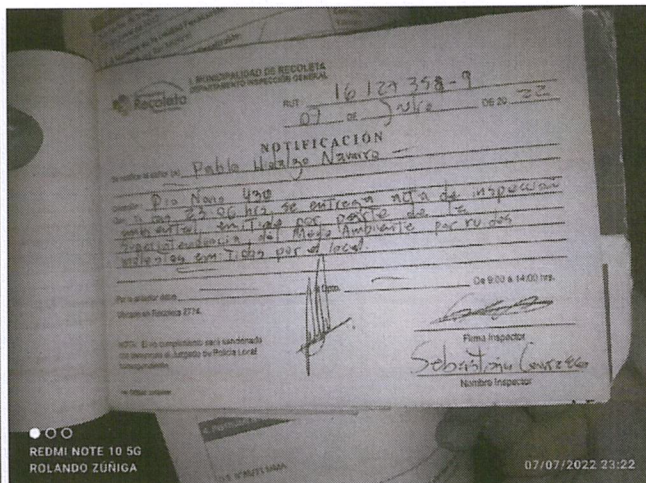 I. MUNICIPALIDAD DE RECOLETA
DEPARTAMENTO INSPECCIÓN GENERAL
Recoleta
RUT 16 127 398-9
07 DE Julio DE 20 22
NOTIFICACIÓN
Se notifica al señor (a) Pablo Hidalgo Navarro
Pio Nono 430
Que, a las 23:06 hrs, se entrega acta de inspección
ambiental, emitida por parte de la
Superintendencia del Medio Ambiente por ruidos
molestos emitidos por el local.
De 9:00 a 14:00 hrs.
Ubicado en Recoleta 2774.
NOTA: El no cumplimiento será sancionado
con denuncia al Juzgado de Policía Local
correspondiente.
Firma Inspector
Sebastián
Nombre Inspector
REDMI NOTE 10 5G
ROLANDO ZÚÑIGA
07/07/2022 23:22